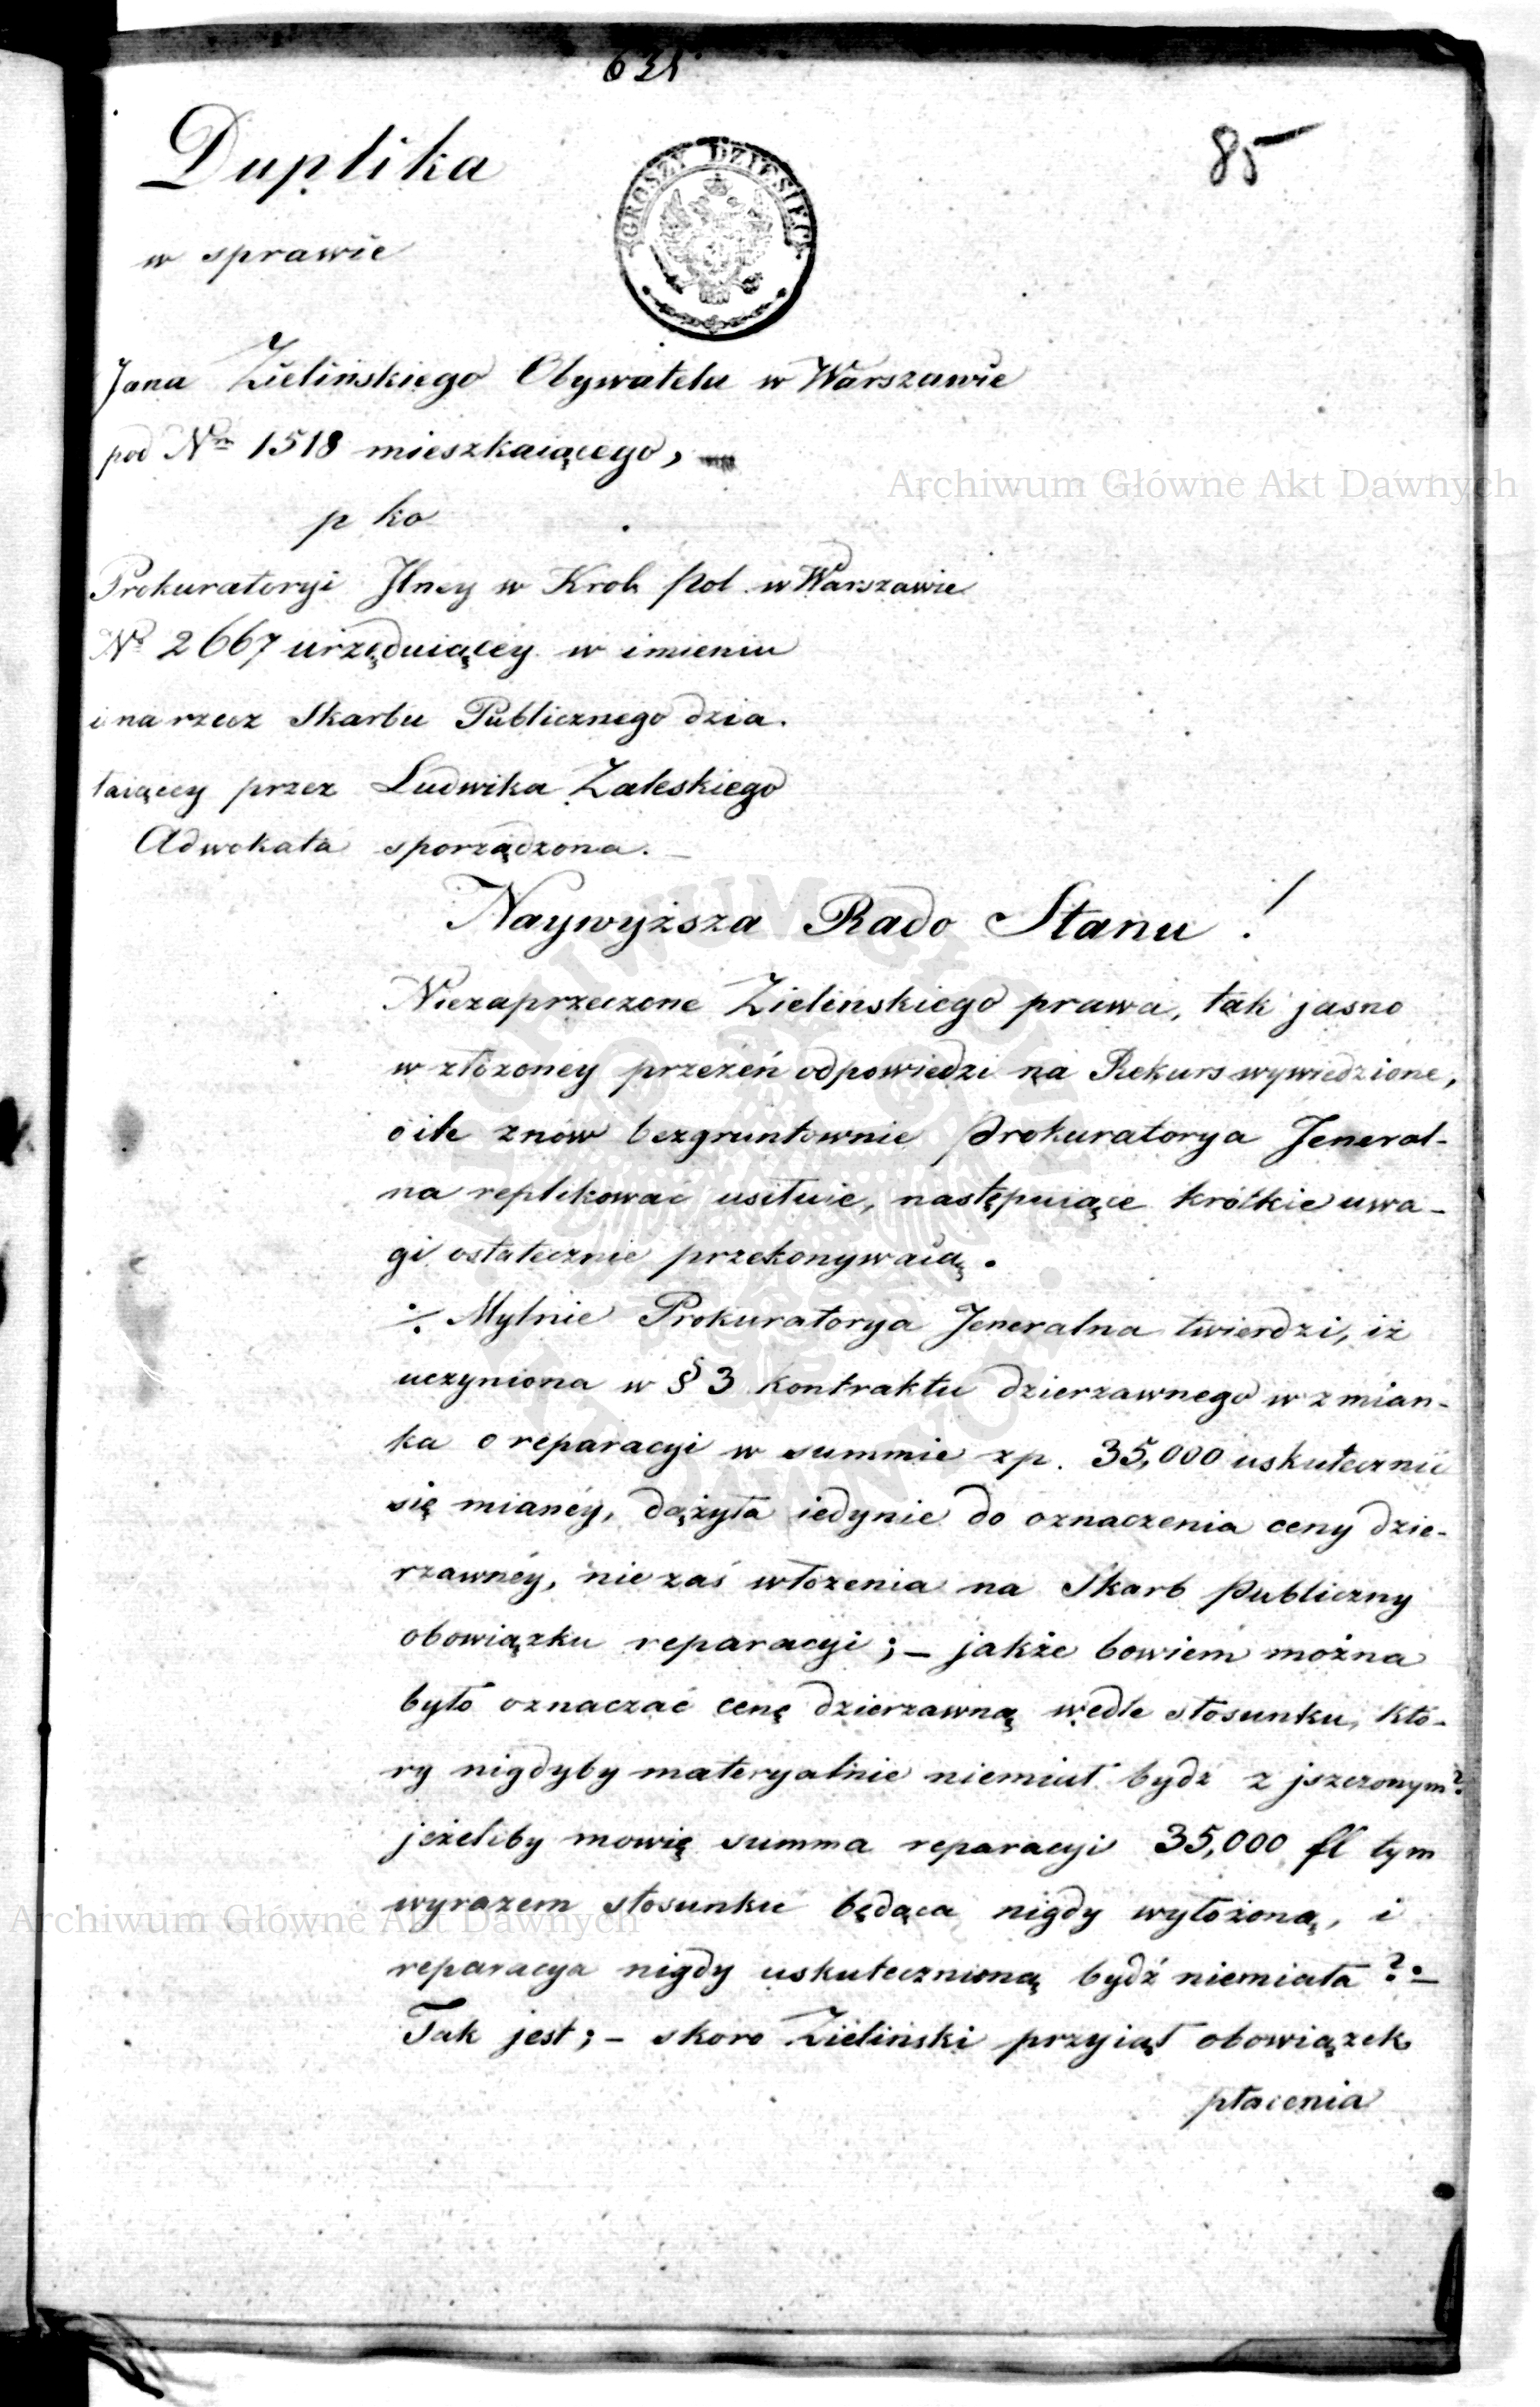 635
Duplika
85
GROSZY DZIESIĘĆ
w sprawie
Jana Zielińskiego Obywatela w Warszawie
pod Nm 1518 mieszkaiącego,
p ko
Prokuratoryi Jlney w Krol. Pol. w Warszawie
No 2667 urzęduiącey w imieniu
i na rzecz Skarbu Publicznego dzia.
łaiącey przez Ludwika Zaleskiego
Adwokata sporządzona.
Naywyższa Rado Stanu !
Niezaprzeczone Zielinskiego prawa, tak jasno
w złożoney przezeń odpowiedzi na Rekurs wywiedzione,
o ile znów bezgruntownie Prokuratorya Jeneral-
na replikować usiłuie, następuiące krótkie uwa-
gi ostatecznie przekonywaią.
Mylnie Prokuratorya Jeneralna twierdzi, iż
uczyniona w § 3 kontraktu dzierzawnego wzmian-
ka o reparacyi w summie zp. 35,000 uskutecznić
się mianéy, dążyła iedynie do oznaczenia ceny dzie-
rzawnéy, nie zaś włożenia na Skarb Publiczny
obowiązku reparacyi ; – jakże bowiem można
było oznaczać cenę dzierzawną wedle stosunku, któ-
ry nigdyby materyalnie niemiał bydź zjszczonym?
jeżeliby mowię summa reparacyi 35,000 fl tym
wyrazem stosunku będąca nigdy wyłożoną, i
reparacya nigdy uskutecznioną bydź niemiała ? –
Tak jest; – skoro Zieliński przyiął obowiązek
płacenia
Archiwum Główne Akt Dawnych
Archiwum Główne Akt Dawnych